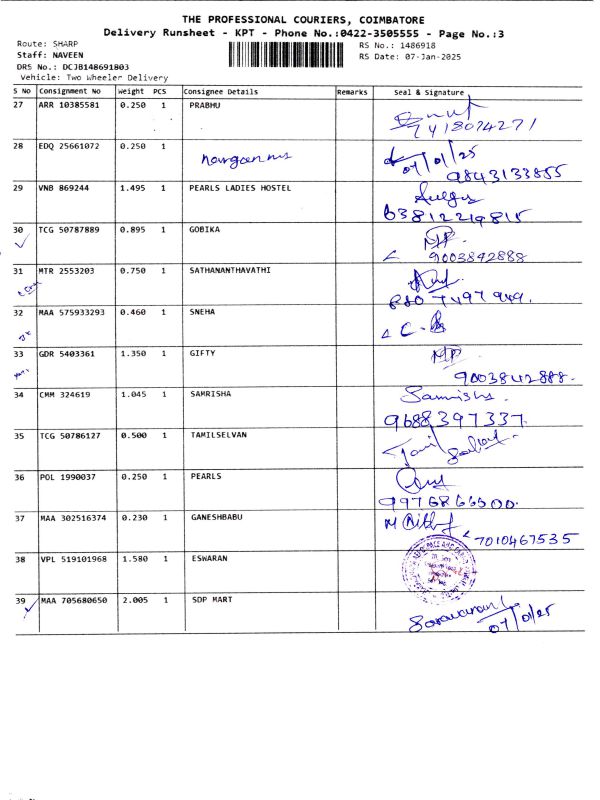 THE PROFESSIONAL COURIERS, COIMBATORE
Delivery Runsheet - KPT - Phone No.:0422-3505555 - Page No.:3
Route: SHARP
RS No.: 1486918
Staff: NAVEEN
RS Date: 07-Jan-2025
DRS No.: DCJB148691803
Vehicle: Two Wheeler Delivery
S No Consignment No Weight PCS Consignee Details Remarks Seal & Signature
27 ARR 10385581 0.250 1 PRABHU
7418074271
28 EDQ 25661072 0.250 1
07/01/25
9843133855
29 VNB 869244 1.495 1 PEARLS LADIES HOSTEL
30 TCG 50787889 0.895 1 GOBIKA
9003842888
31 MTR 2553203 0.750 1 SATHANANTHAVATHI
32 MAA 575933293 0.460 1 SNEHA
33 GDR 5403361 1.350 1 GIFTY
9003842888.
34 CMM 324619 1.045 1 SAMRISHA
9688397337.
35 TCG 50786127 0.500 1 TAMILSELVAN
Tamil
36 POL 1990037 0.250 1 PEARLS
37 MAA 302516374 0.230 1 GANESHBABU
7010467535
38 VPL 519101968 1.580 1 ESWARAN
39 MAA 705680650 2.005 1 SDP MART
07/01/25